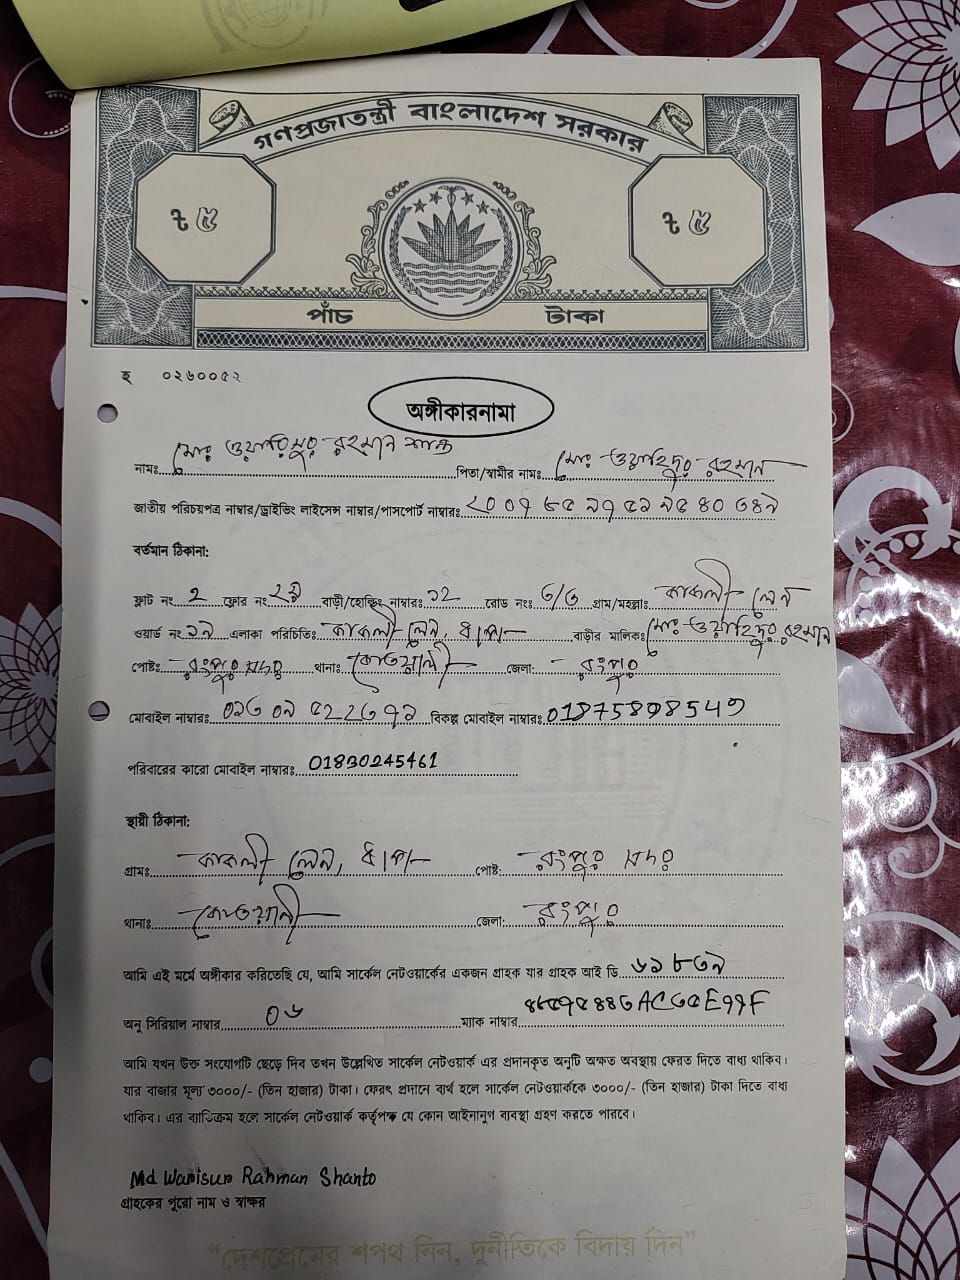 গণপ্রজাতন্ত্রী বাংলাদেশ সরকার
৳ ৫ ৳ ৫
পাঁচ টাকা
হ ০২৬০০৫২
অঙ্গীকারনামা
নামঃ মোঃ ওয়ারিসুর রহমান শান্ত পিতা/স্বামীর নামঃ মোঃ ওয়াহিদুর রহমান
জাতীয় পরিচয়পত্র নাম্বার/ড্রাইভিং লাইসেন্স নাম্বার/পাসপোর্ট নাম্বারঃ
বর্তমান ঠিকানা:
ফ্লাট নং ২ ফ্লোর নং ২য় বাড়ী/হোল্ডিং নাম্বারঃ ১২ রোড নংঃ ৩/৩ গ্রাম/মহল্লাঃ কাকলী লেন
ওয়ার্ড নং ১৯ এলাকা পরিচিতিঃ কাকলী লেন, ধাপ বাড়ীর মালিকঃ মোঃ ওয়াহিদুর রহমান
পোষ্টঃ রংপুর সদর থানাঃ কোতয়ালী জেলা: রংপুর
মোবাইল নাম্বারঃ ০১৩০৯৫২২৩৭১ বিকল্প মোবাইল নাম্বারঃ
পরিবারের কারো মোবাইল নাম্বারঃ 01830245461
স্থায়ী ঠিকানা:
গ্রামঃ কাকলী লেন, ধাপ পোষ্ট: রংপুর সদর
থানাঃ কোতয়ালী জেলা: রংপুর
আমি এই মর্মে অঙ্গীকার করিতেছি যে, আমি সার্কেল নেটওয়ার্কের একজন গ্রাহক যার গ্রাহক আই ডি ৬১৮৩৯
অনু সিরিয়াল নাম্বার ০৬ ম্যাক নাম্বার
আমি যখন উক্ত সংযোগটি ছেড়ে দিব তখন উল্লেখিত সার্কেল নেটওয়ার্ক এর প্রদানকৃত অনুটি অক্ষত অবস্থায় ফেরত দিতে বাধ্য থাকিব।
যার বাজার মূল্য ৩০০০/- (তিন হাজার) টাকা। ফেরৎ প্রদানে ব্যর্থ হলে সার্কেল নেটওয়ার্ককে ৩০০০/- (তিন হাজার) টাকা দিতে বাধ্য
থাকিব। এর ব্যাতিক্রম হলে সার্কেল নেটওয়ার্ক কর্তৃপক্ষ যে কোন আইনানুগ ব্যবস্থা গ্রহণ করতে পারবে।
Md Warisur Rahman Shanto
গ্রাহকের পুরো নাম ও স্বাক্ষর
“দেশপ্রেমের শপথ নিন, দুর্নীতিকে বিদায় দিন”